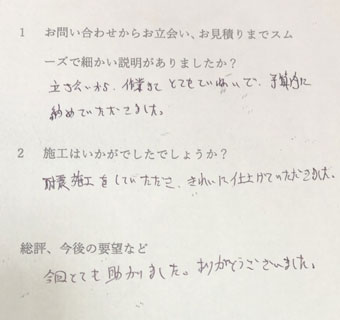 1 お問い合わせからお立会い、お見積りまでスム
ーズで細かい説明がありましたか?
立ち会いから、作業まで とてもていねいで、予算内に
納めていただきました。
2 施工はいかがでしたでしょうか?
耐震施工をしていただき、きれいに仕上げていただきました。
総評、今後の要望など
今回とても助かりました。ありがとうございました。